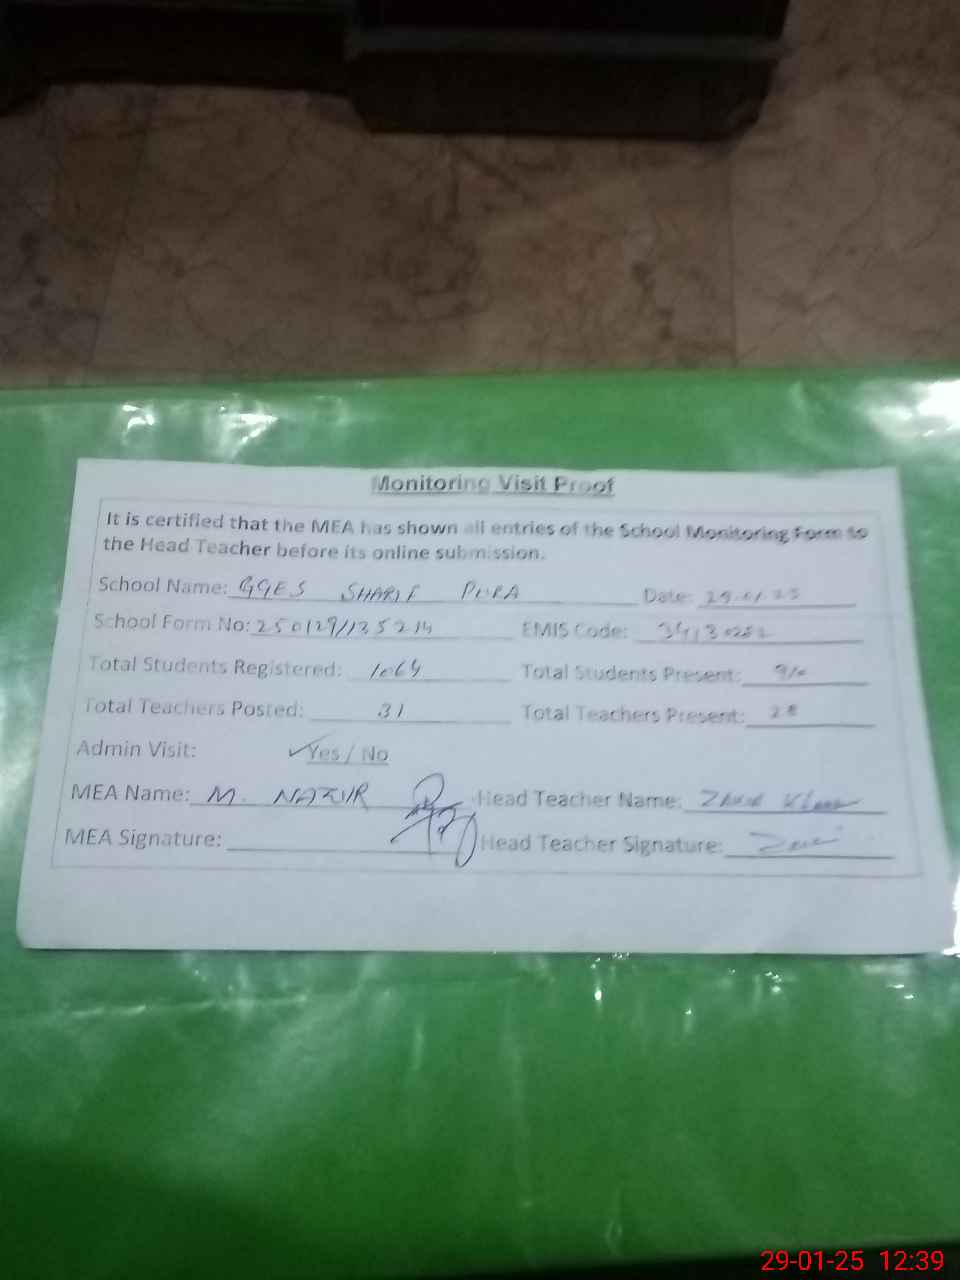 Monitoring Visit Proof
It is certified that the MEA has shown all entries of the School Monitoring Form to
the Head Teacher before its online submission.
School Name: GGES SHARIF PURA Date: 29.01.25
School Form No: EMIS Code:
Total Students Registered: 1064 Total Students Present: 910
Total Teachers Posted: 31 Total Teachers Present: 28
Admin Visit: ✓Yes / No
MEA Name: M. NAZIR Head Teacher Name:
MEA Signature: Head Teacher Signature:
29-01-25 12:39